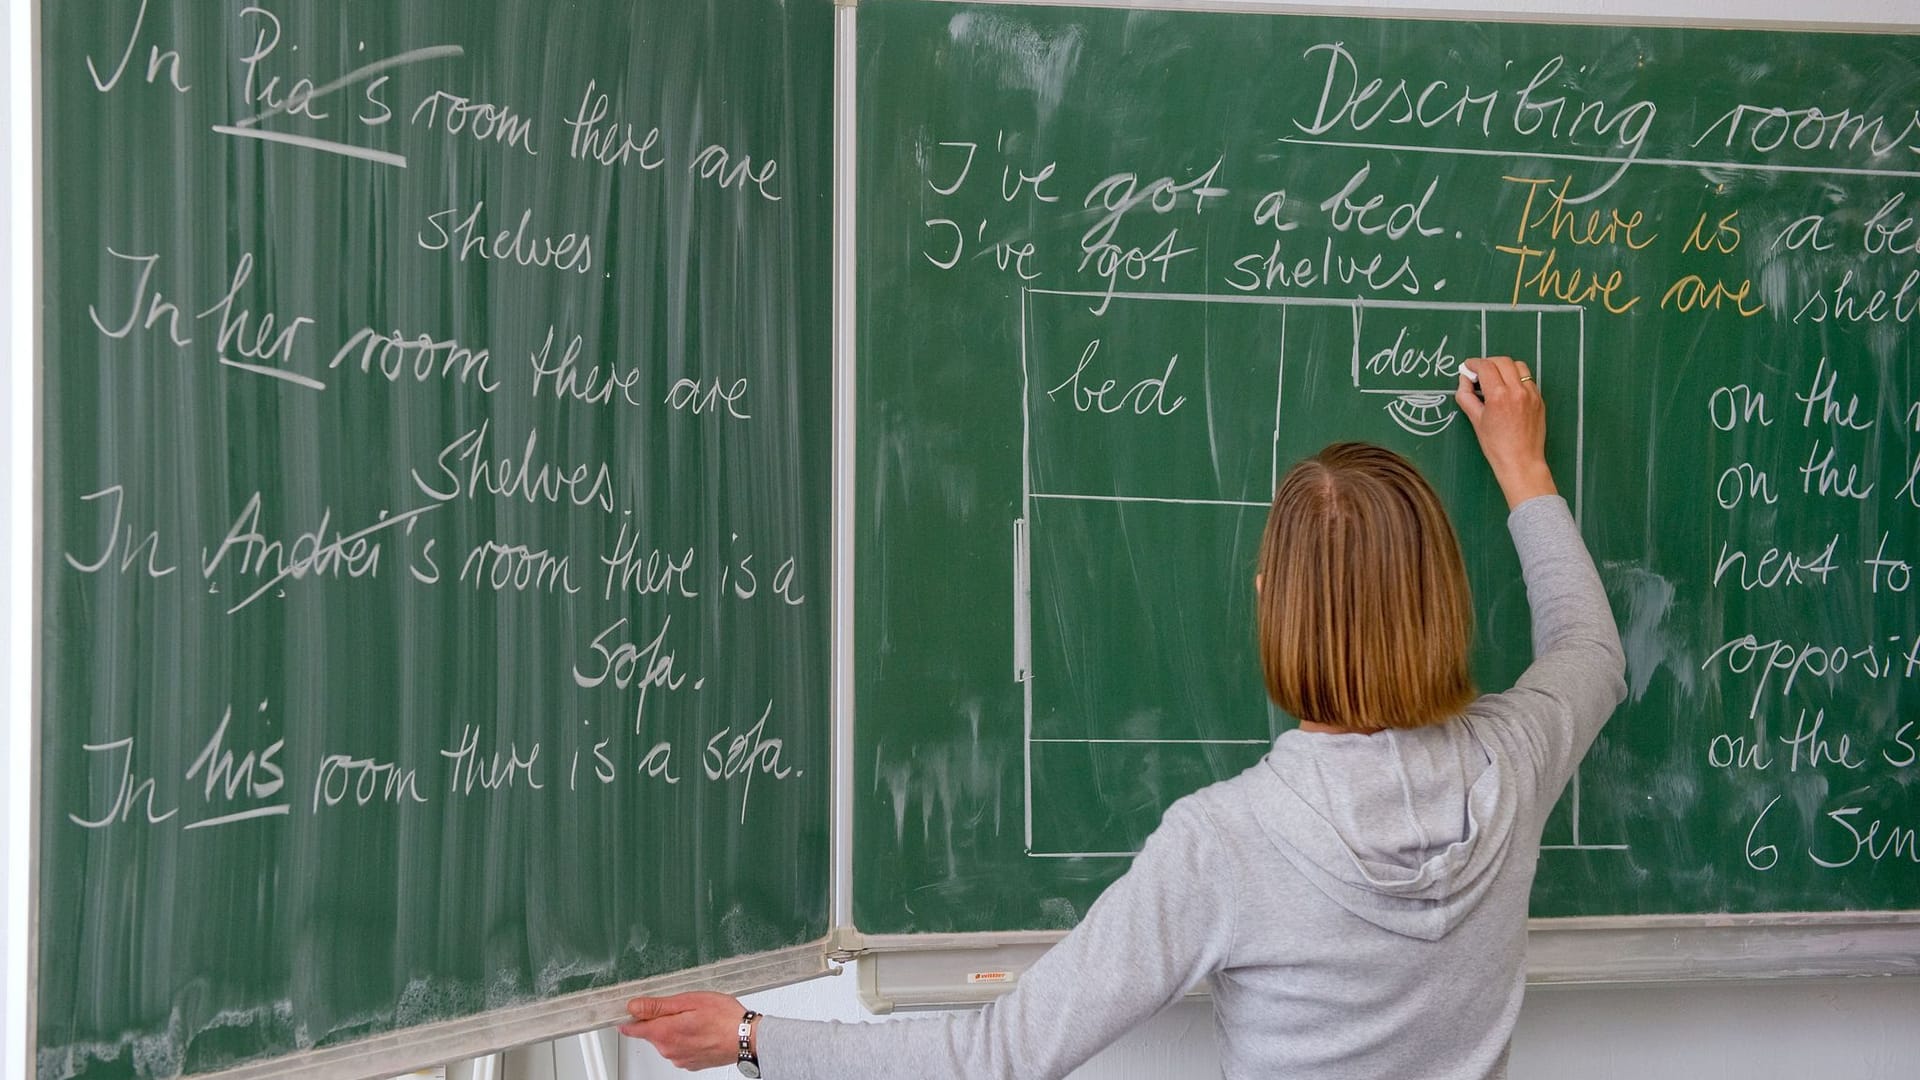 In Pia's room there are
shelves.
In her room there are
shelves.
In Andrei's room there is a
sofa.
In his room there is a sofa.
Describing rooms
I've got a bed. There is a
I've got shelves. There are
bed
desk
on the
on the
next to
on the
6
wittler